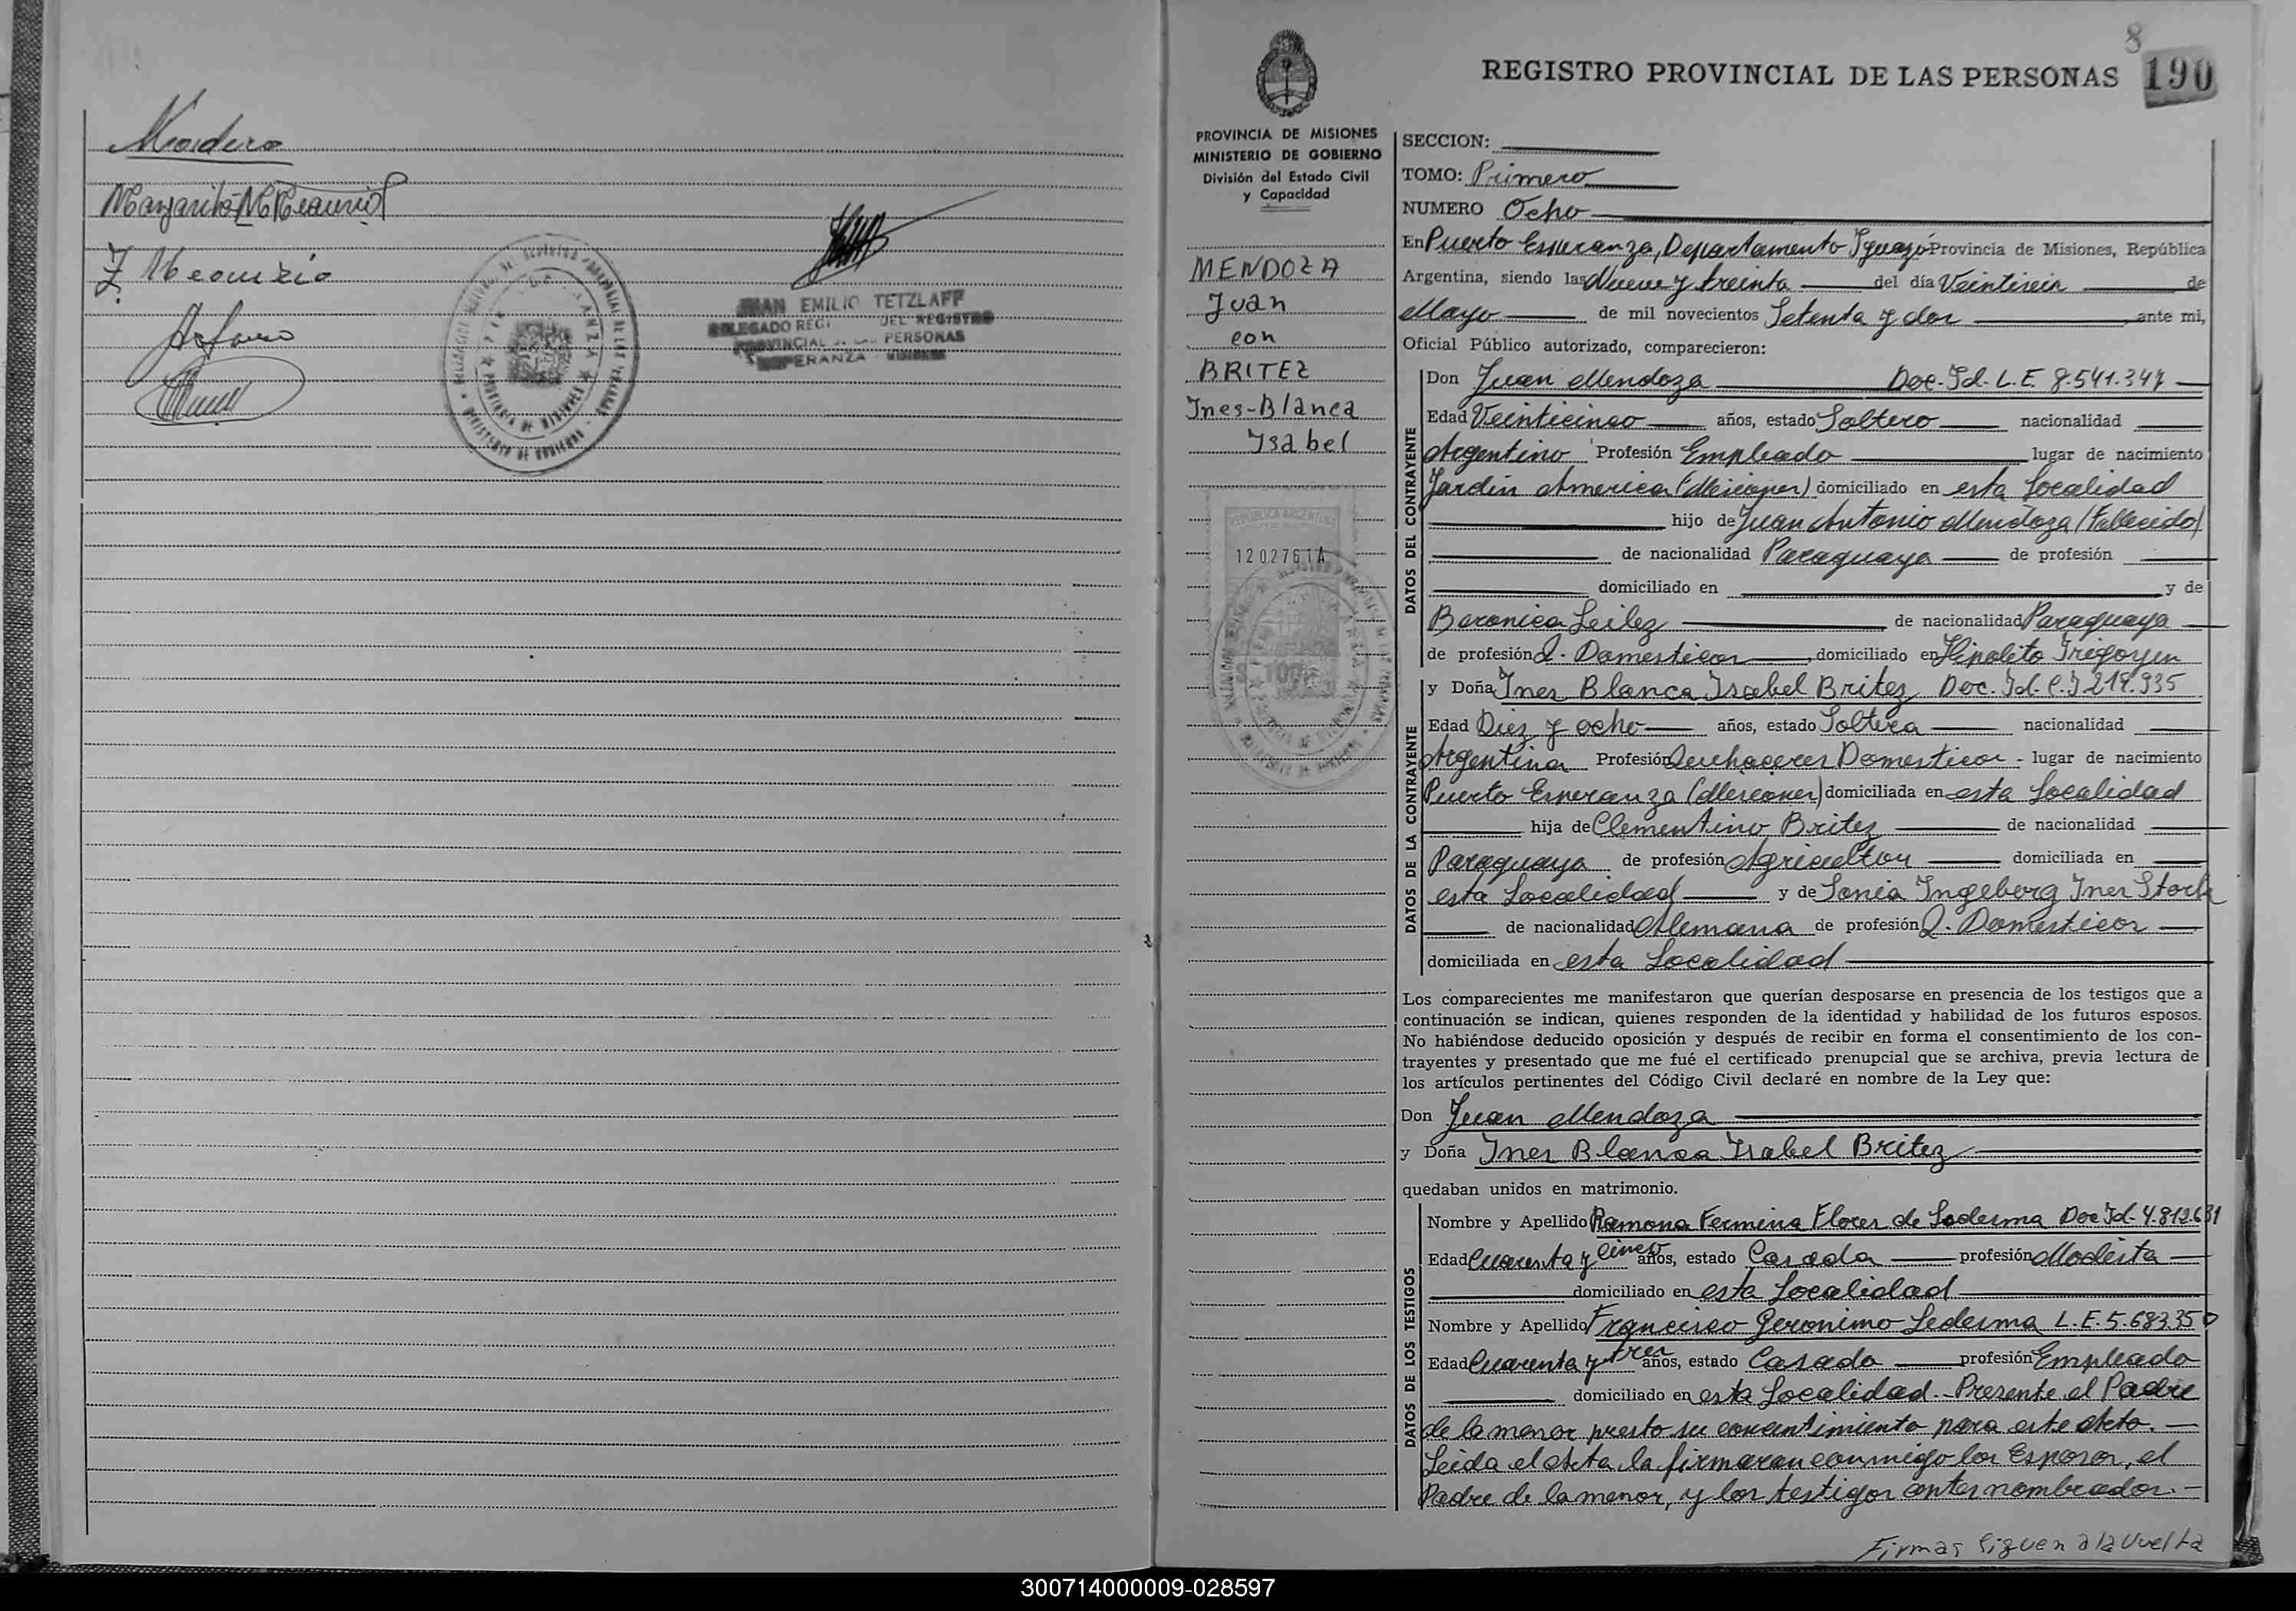 Margarita M
JUAN EMILIO TETZLAFF
DELEGADO REGI DEL REGISTRO
PROVINCIAL DE LAS PERSONAS
ESPERANZA - MISIONES
8
REGISTRO PROVINCIAL DE LAS PERSONAS 190
PROVINCIA DE MISIONES
MINISTERIO DE GOBIERNO
División del Estado Civil
y Capacidad
MENDOZA
Juan
con
BRITEZ
Ines-Blanca
Isabel
REPUBLICA ARGENTINA
1202761A
SECCION:
TOMO: Primero
NUMERO Ocho
En Puerto Esperanza, Departamento Iguazú Provincia de Misiones, República
Argentina, siendo las Nueve y treinta del día Veintiseis de
Mayo de mil novecientos Setenta y dos ante mi,
Oficial Público autorizado, comparecieron:
DATOS DEL CONTRAYENTE
Don Juan Mendoza Doc. Id. L.E. 8.541.347
Edad Veinticinco años, estado Soltero nacionalidad
Argentino Profesión Empleado lugar de nacimiento
Jardín America (Misiones) domiciliado en esta Localidad
hijo de Juan Antonio Mendoza (Fallecido)
de nacionalidad Paraguaya de profesión
domiciliado en y de
Beronica Leilez de nacionalidad Paraguaya
de profesión Q. Domesticos domiciliado en Hipolito Irigoyen
DATOS DE LA CONTRAYENTE
y Doña Ines Blanca Isabel Britez Doc. Id. C.I 219.935
Edad Diez y ocho años, estado Soltera nacionalidad
Argentina Profesión Quehaceres Domesticos - lugar de nacimiento
Puerto Esperanza (Misiones) domiciliada en esta Localidad
hija de Clementino Britez de nacionalidad
Paraguaya de profesión Agricultor domiciliada en
esta Localidad y de Sonia Ingeberg Ines Storb
de nacionalidad Alemana de profesión Q. Domesticos
domiciliada en esta Localidad
Los comparecientes me manifestaron que querían desposarse en presencia de los testigos que a
continuación se indican, quienes responden de la identidad y habilidad de los futuros esposos.
No habiéndose deducido oposición y después de recibir en forma el consentimiento de los con-
trayentes y presentado que me fué el certificado prenupcial que se archiva, previa lectura de
los artículos pertinentes del Código Civil declaré en nombre de la Ley que:
Don Juan Mendoza
y Doña Ines Blanca Isabel Britez
quedaban unidos en matrimonio.
DATOS DE LOS TESTIGOS
Nombre y Apellido Ramona Fermina Flores de Ledesma Doc Id. 4.812.631
Edad Cuarenta y cinco años, estado Casada profesión Modista
domiciliado en esta Localidad
Nombre y Apellido Francisco Geronimo Ledesma L.E. 5.683.350
Edad Cuarenta y tres años, estado Casado profesión Empleado
domiciliado en esta Localidad. - Presente el Padre
de la menor presto su consentimiento para este Acto. -
Leida el Acta, la firmaron conmigo los Esposos, el
Padre de la menor, y los testigos antes nombrados. -
Firmas siguen a la vuelta
300714000009-028597